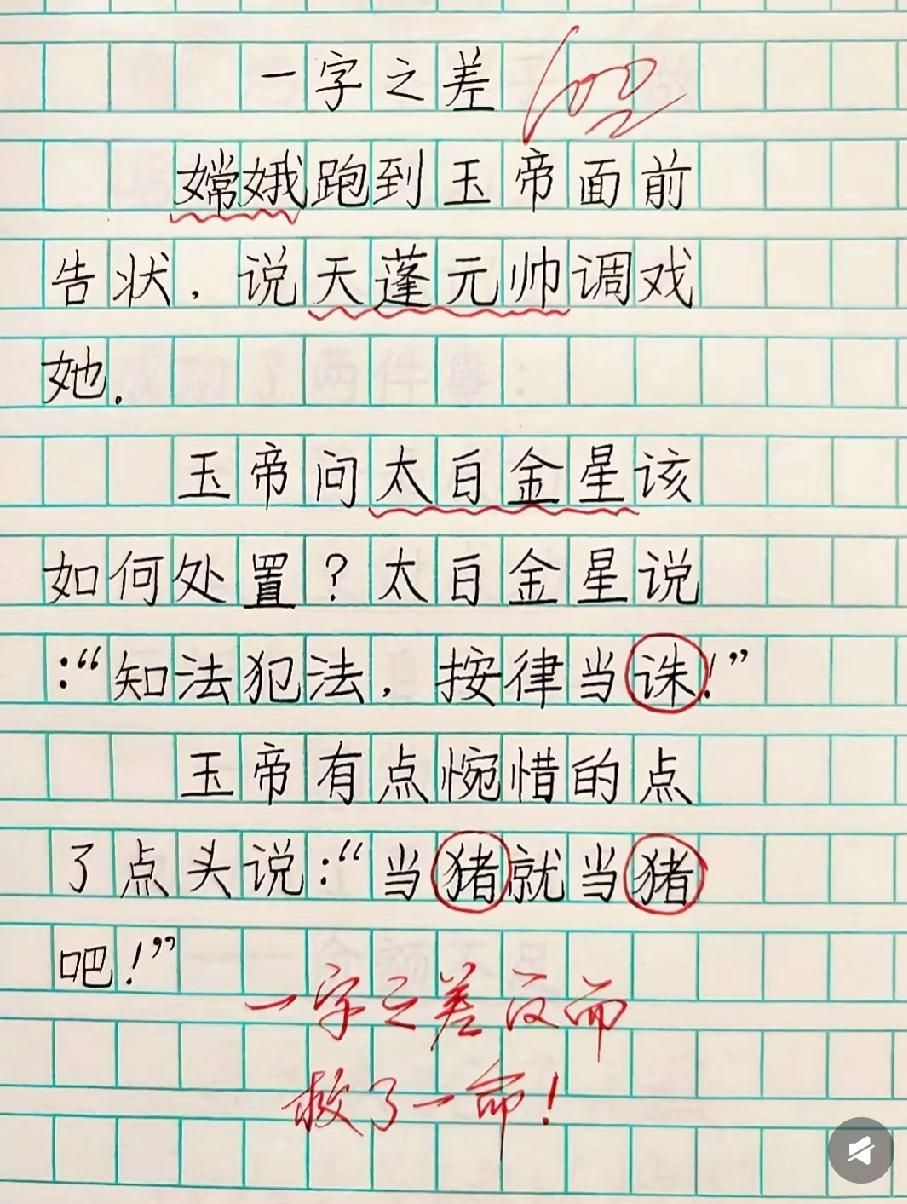 一字之差 100
嫦娥跑到玉帝面前
告状，说天蓬元帅调戏
她.
玉帝问太白金星该
如何处置？太白金星说
:“知法犯法，按律当诛!”
玉帝有点惋惜的点
了点头说:“当猪就当猪
吧!”
一字之差反而
救了一命!